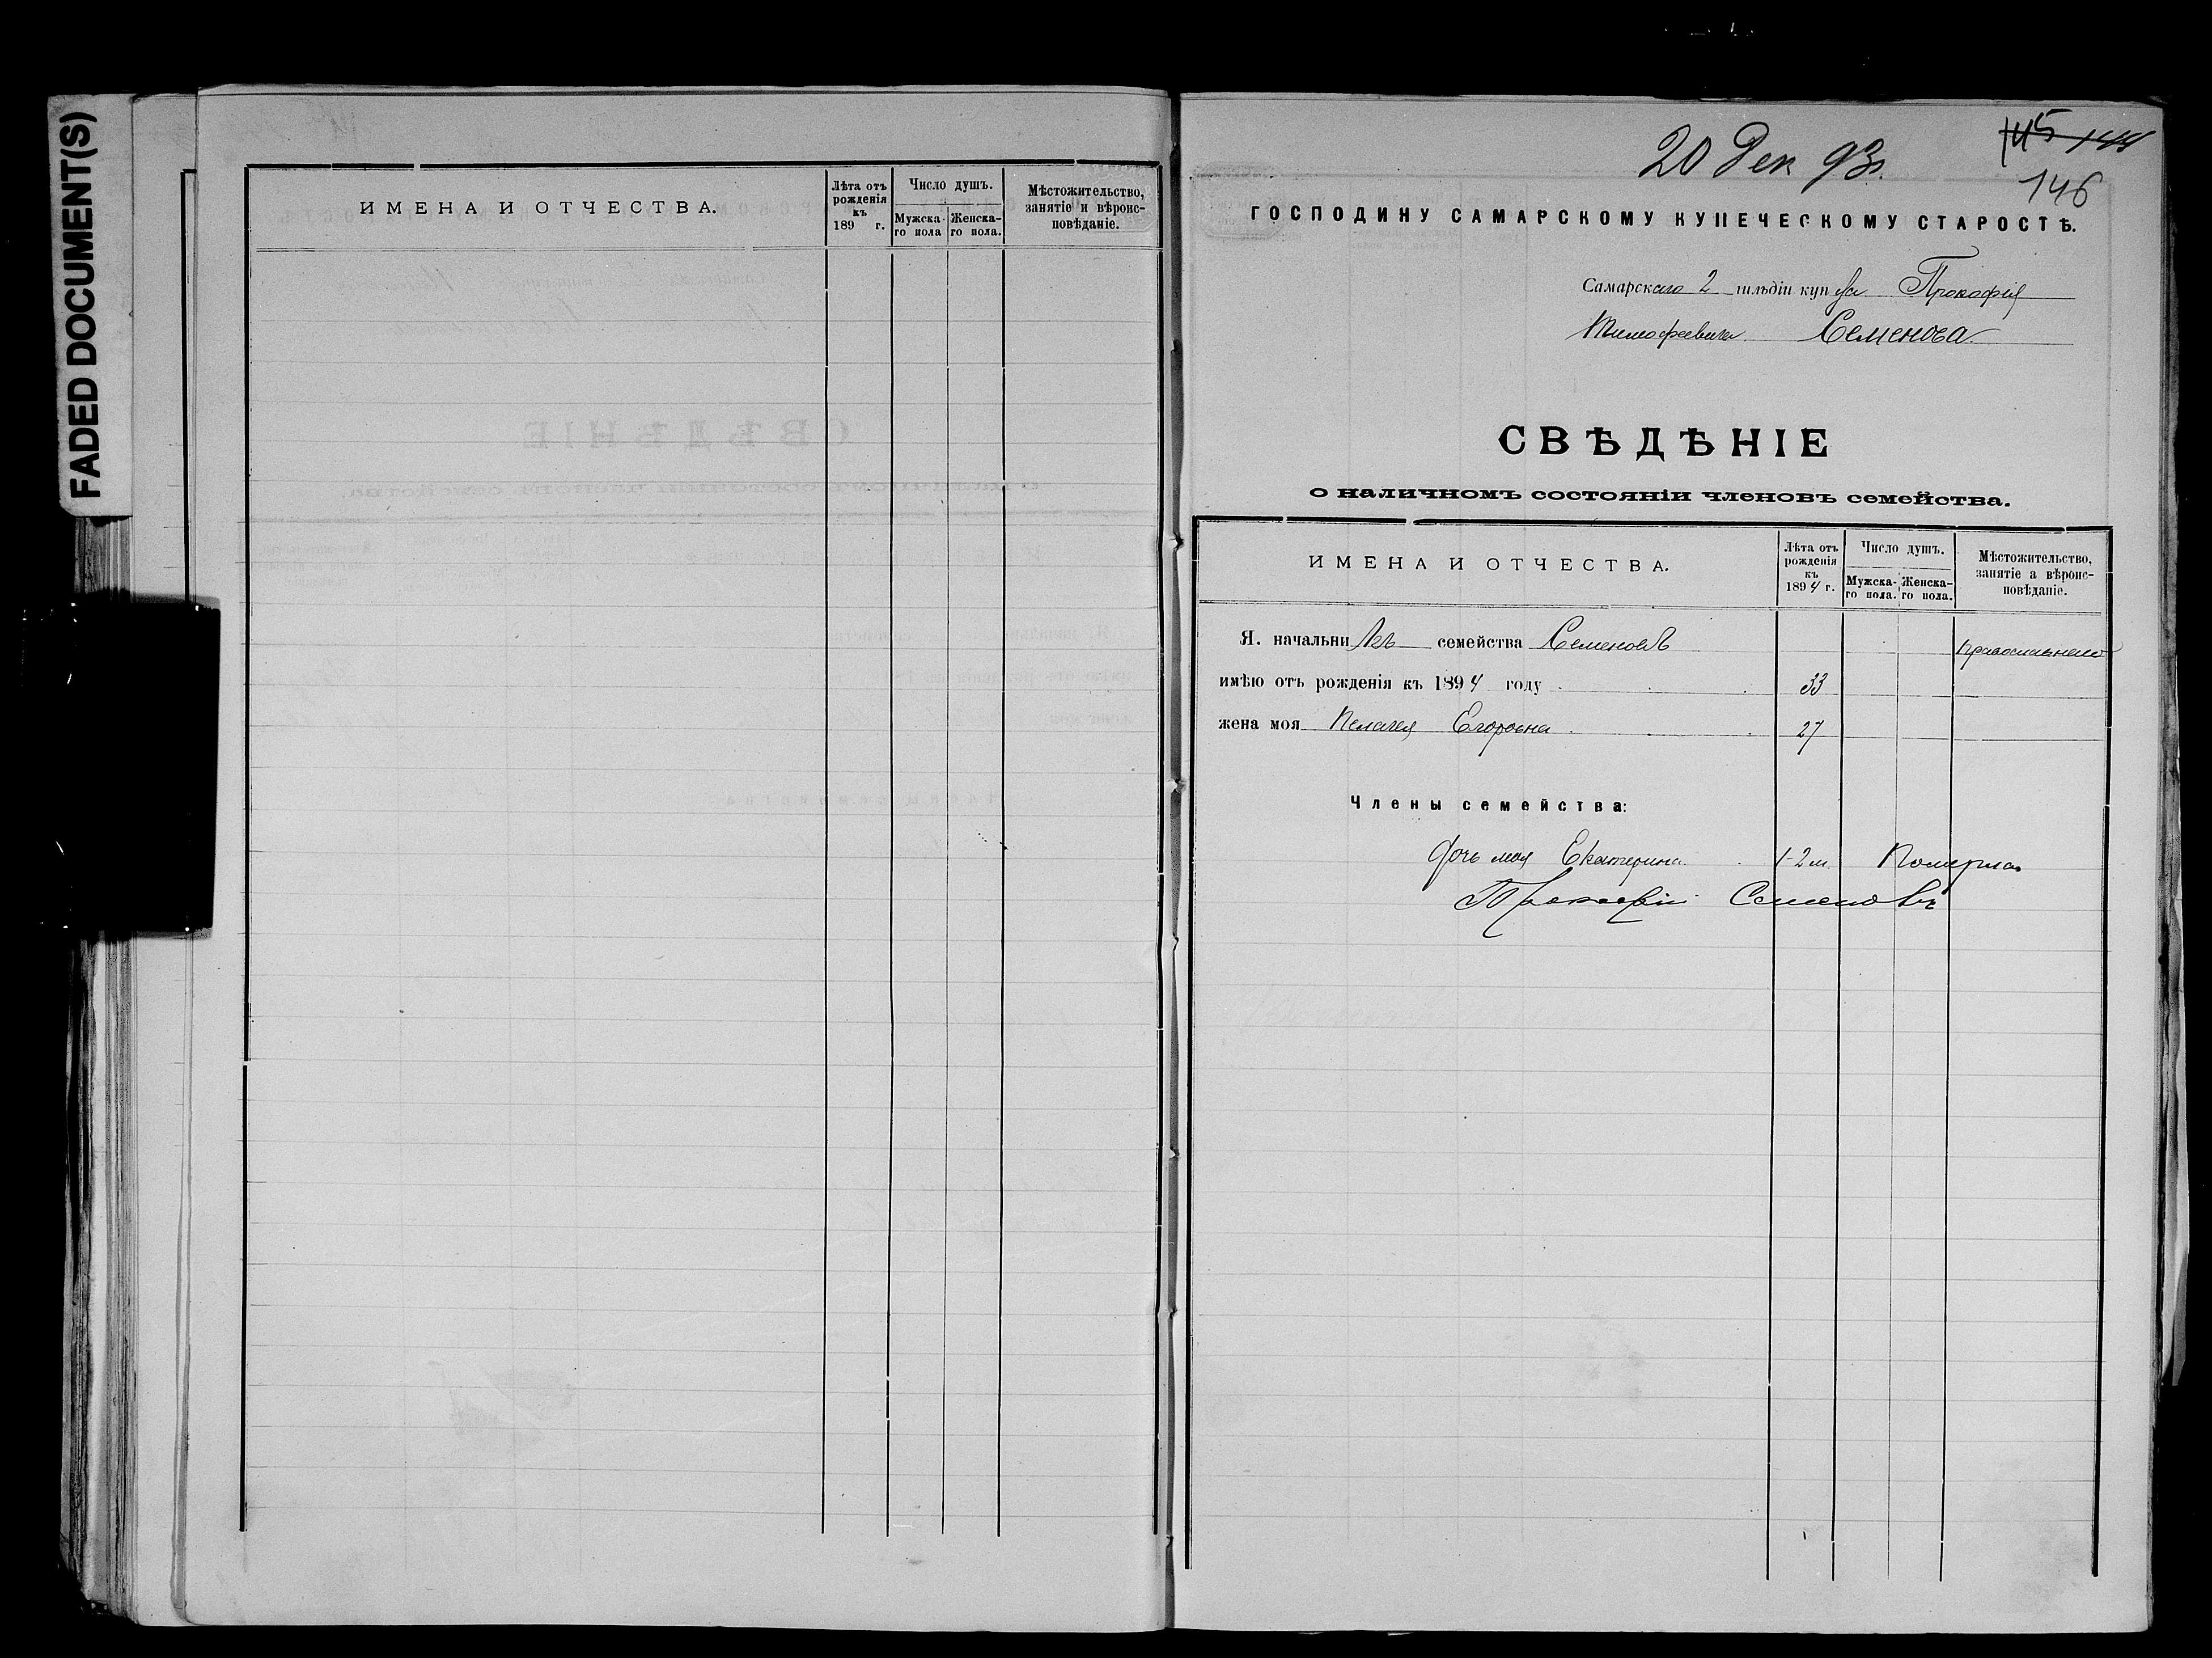 FADED DOCUMENT(S)
ИМЕНА И ОТЧЕСТВА.
Лѣта отъ рожденія къ 189 г.
Число душъ.
Мужска-го пола
Женска-го пола.
Мѣстожительство, занятіе и вѣроис-повѣданіе.
20 Дек 93г.
145 144
146
ГОСПОДИНУ САМАРСКОМУ КУПЕЧЕСКОМУ СТАРОСТѢ.
Самарскаго 2 гильдіи купца Прокофія
Тимофеевича Семенова
СВѢДѢНІЕ
о наличномъ состояніи членовъ семейства.
ИМЕНА И ОТЧЕСТВА.
Лѣта отъ рожденія къ 1894 г.
Число душъ.
Мужска-го пола.
Женска-го пола.
Мѣстожительство, занятіе а вѣроис-повѣданіе.
Я. начальникъ семейства Семеновъ Православнаго
имѣю отъ рожденія къ 1894 году 33
жена моя Пелагея Егоровна 27
Члены семейства:
Дочь моя Екатерина 1-2 м. Померла
Прокофій Семеновъ